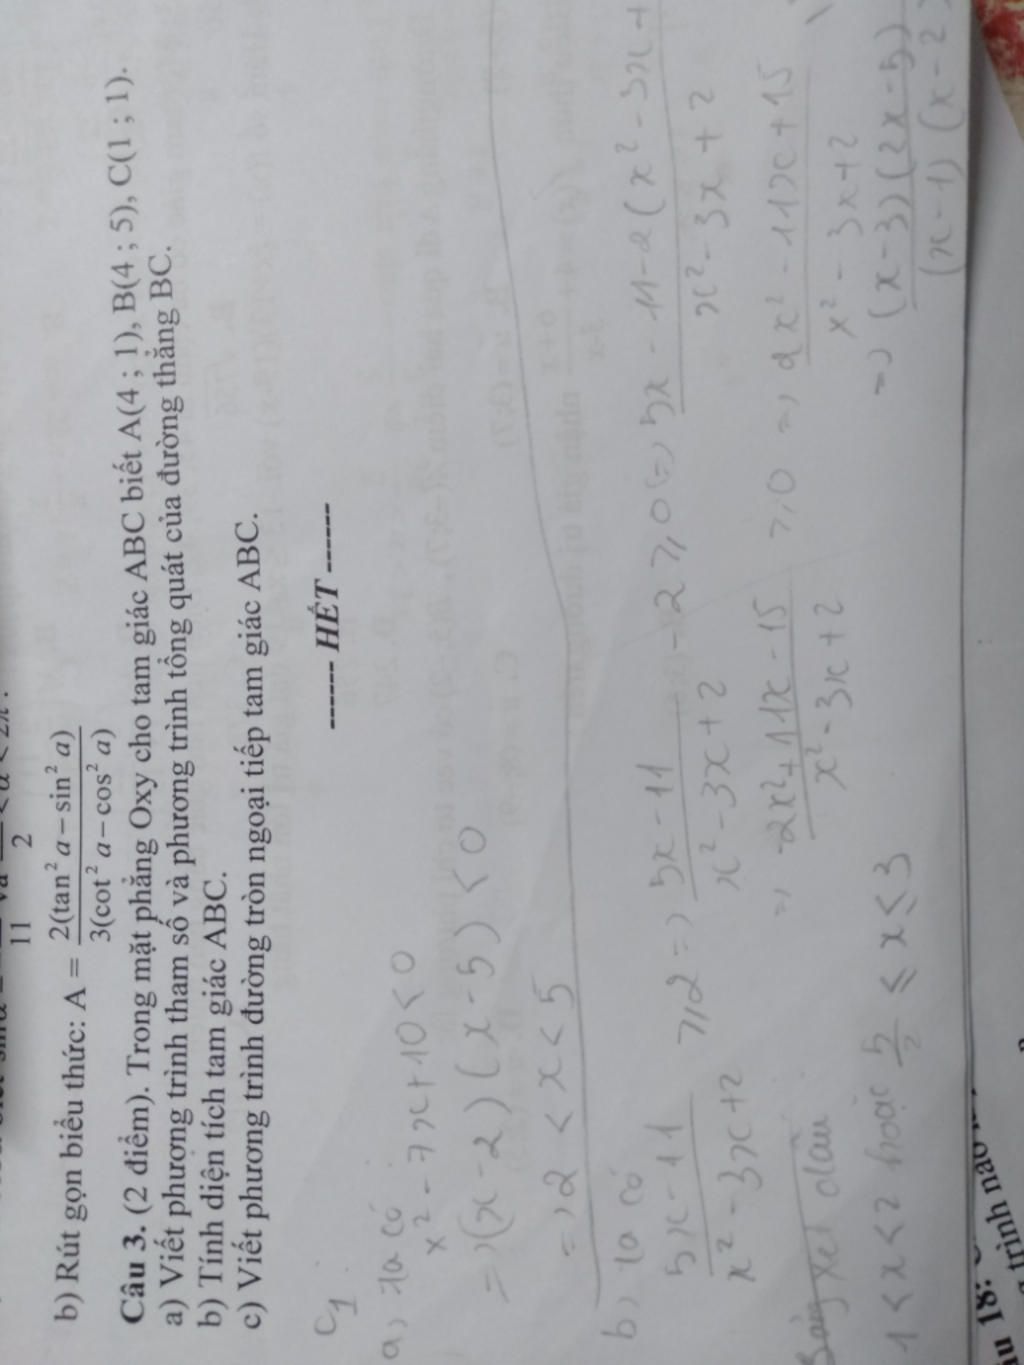 11 2
b) Rút gọn biểu thức: A = 2(tan² a – sin² a) / 3(cot² a – cos² a)
Câu 3. (2 điểm). Trong mặt phẳng Oxy cho tam giác ABC biết A(4 ; 1), B(4 ; 5), C(1 ; 1).
a) Viết phương trình tham số và phương trình tổng quát của đường thẳng BC.
b) Tính diện tích tam giác ABC.
c) Viết phương trình đường tròn ngoại tiếp tam giác ABC.
------ HẾT ------
C1
a, ta có
x² - 7x + 10 < 0
=> (x - 2) (x - 5) < 0
=> 2 < x < 5
b, ta có
5x - 11 / x² - 3x + 2 ≥ 2 => 5x - 11 / x² - 3x + 2 - 2 ≥ 0 => 5x - 11 - 2 (x² - 3x + / x² - 3x + 2
=> -2x² + 11x - 15 / x² - 3x + 2 ≥ 0 => 2x² - 11x + 15 / x² - 3x + 2
Bảng xét dấu
=> (x - 3) (2x - 5) / (x - 1) (x - 2)
1 < x < 2 hoặc 5/2 ≤ x ≤ 3
18:
trình nào